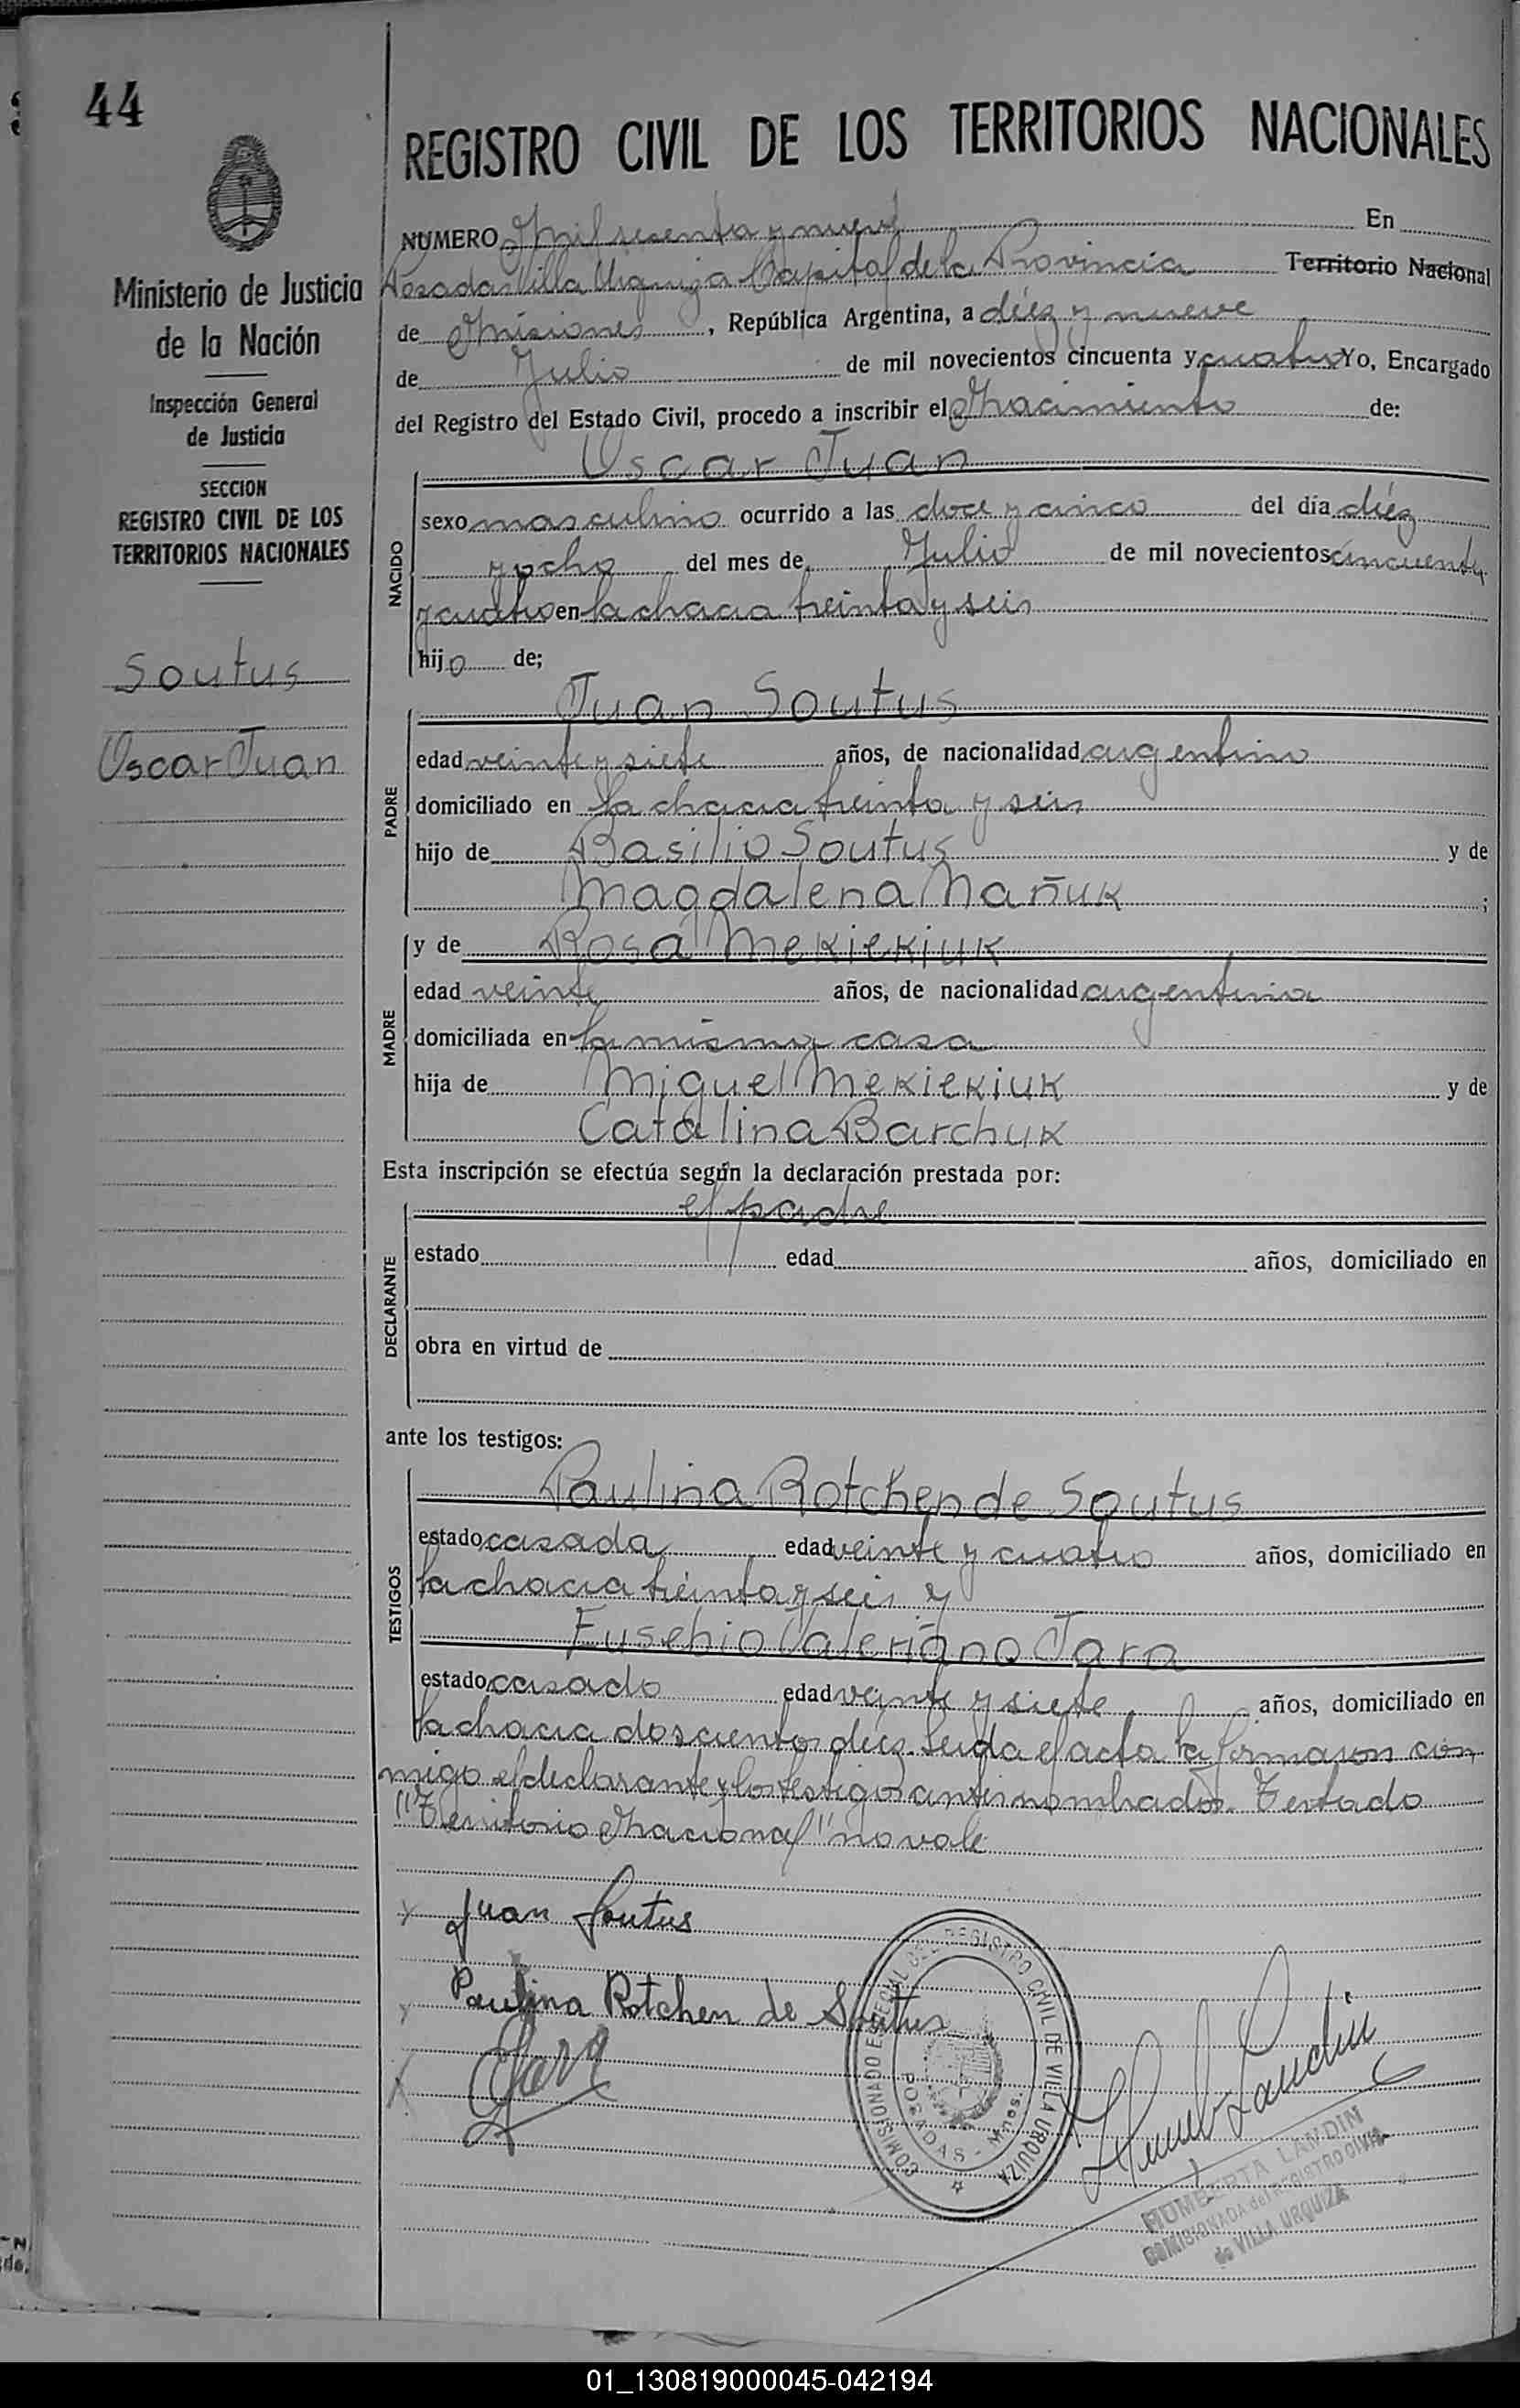 44
REGISTRO CIVIL DE LOS TERRITORIOS NACIONALES
Ministerio de Justicia
de la Nación
Inspección General
de Justicia
SECCION
REGISTRO CIVIL DE LOS
TERRITORIOS NACIONALES
Soutus
Oscar Juan
NUMERO Mil sesenta y nueve En
Posadas Villa Urquiza Capital de la Provincia Territorio Nacional
de Misiones, República Argentina, a diéz y nueve
de Julio de mil novecientos cincuenta y cuatro Yo, Encargado
del Registro del Estado Civil, procedo a inscribir el Nacimiento de:
NACIDO
Oscar Juan
sexo masculino ocurrido a las doce y cinco del día diéz
y ocho del mes de Julio de mil novecientos cincuenta
y cuatro en la chacra treinta y seis
hijo de;
PADRE
Juan Soutus
edad veinte y siete años, de nacionalidad argentino
domiciliado en la chacra treinta y seis
hijo de Basilio Soutus y de
Magdalena Mañuk;
MADRE
y de Rosa Mekiekiuk
edad veinte años, de nacionalidad argentina
domiciliada en la misma casa
hija de Miguel Mekiekiuk y de
Catalina Barchuk
Esta inscripción se efectúa según la declaración prestada por:
DECLARANTE
el padre
estado edad años, domiciliado en
obra en virtud de
ante los testigos:
TESTIGOS
Paulina Rotchen de Soutus
estado casada edad veinte y cuatro años, domiciliado en
la chacra treinta y seis y
Eusebio Valeriano Jara
estado casado edad veinte y siete años, domiciliado en
la chacra doscientos diéz. Leida el acta la firmaron con
migo el declarante y los testigos antes nombrados. Testado
"Territorio Nacional" no vale
Juan Soutus
Paulina Rotchen de Soutus
EJara
COMISIONADO ESPECIAL DEL REGISTRO CIVIL DE VILLA URQUIZA
POSADAS - Mnes.
Humb Landin
HUMBERTA LANDIN
COMISIONADA del REGISTRO CIVIL
de VILLA URQUIZA
01_130819000045-042194